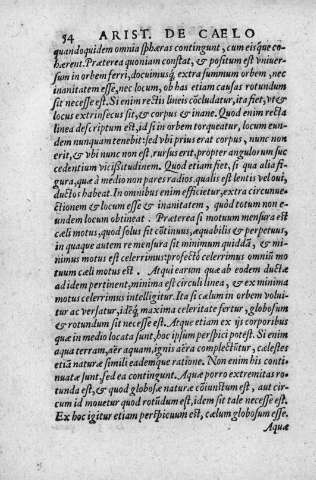 54 ARIST. DE CAELO
quandoquidem omnia sphæras contingunt, cum eisq́ue co-
hærent. Præterea quoniam constat, & positum est vniuer-
sum in orbem ferri, docuimusq́; extra summum orbem, nec
inanitatem esse, nec locum, ob has etiam causas rotundum
sit necesse est. Si enim rectis lineis cōcludatur, ita fiet, vt &
locus extrinsecus sit, & corpus & inane. Quod enim recta
linea descriptum est, id si in orbem torqueatur, locum eun-
dem nunquam tenebit: sed vbi prius erat corpus, nunc non
erit, & vbi nunc non est, rursus erit, propter angulorum suc
cedentium vicissitudinem. Quod etiam fiet, si qua alia fi-
gura, quæ à medio non pares radios, qualis est lentis vel oui,
ductos habeat. In omnibus enim efficietur, extra circunue-
ctionem & locum esse & inanitatem, quòd totum non e-
undem locum obtineat. Præterea si motuum mensura est
cæli motus, quòd solus sit cōtinuus, æquabilis & perpetuus,
in quaque autem re mensura sit minimum quiddã, & mi-
nimus motus est celerrimus: profectò celerrimus omniũ mo
tuum cæli motus est. Atqui earum quæ ab eodem ductæ
ad idem pertinent, minima est circuli linea, & ex minima
motus celerrimus intelligitur. Ita si cælum in orbem volui-
tur ac versatur, idéq́; maxima celeritate fertur, globosum
& rotundum sit necesse est. Atque etiam ex ijs corporibus
quæ in medio locata sunt, hoc ipsum perspici potest. Si enim
aqua terram, aër aquam, ignis aëra complectũtur, cælestes
etiã naturæ simili eademque ratione. Non enim his conti-
nuatæ sunt, sed ea contingunt. Aquæ porro extremitas ro-
tunda est, & quod globosæ naturæ cōiunctum est, aut cir-
cum id mouetur quod rotũdum est, idem sit tale necesse est.
Ex hoc igitur etiam perspicuum est, cælum globosum esse.
Aquæ